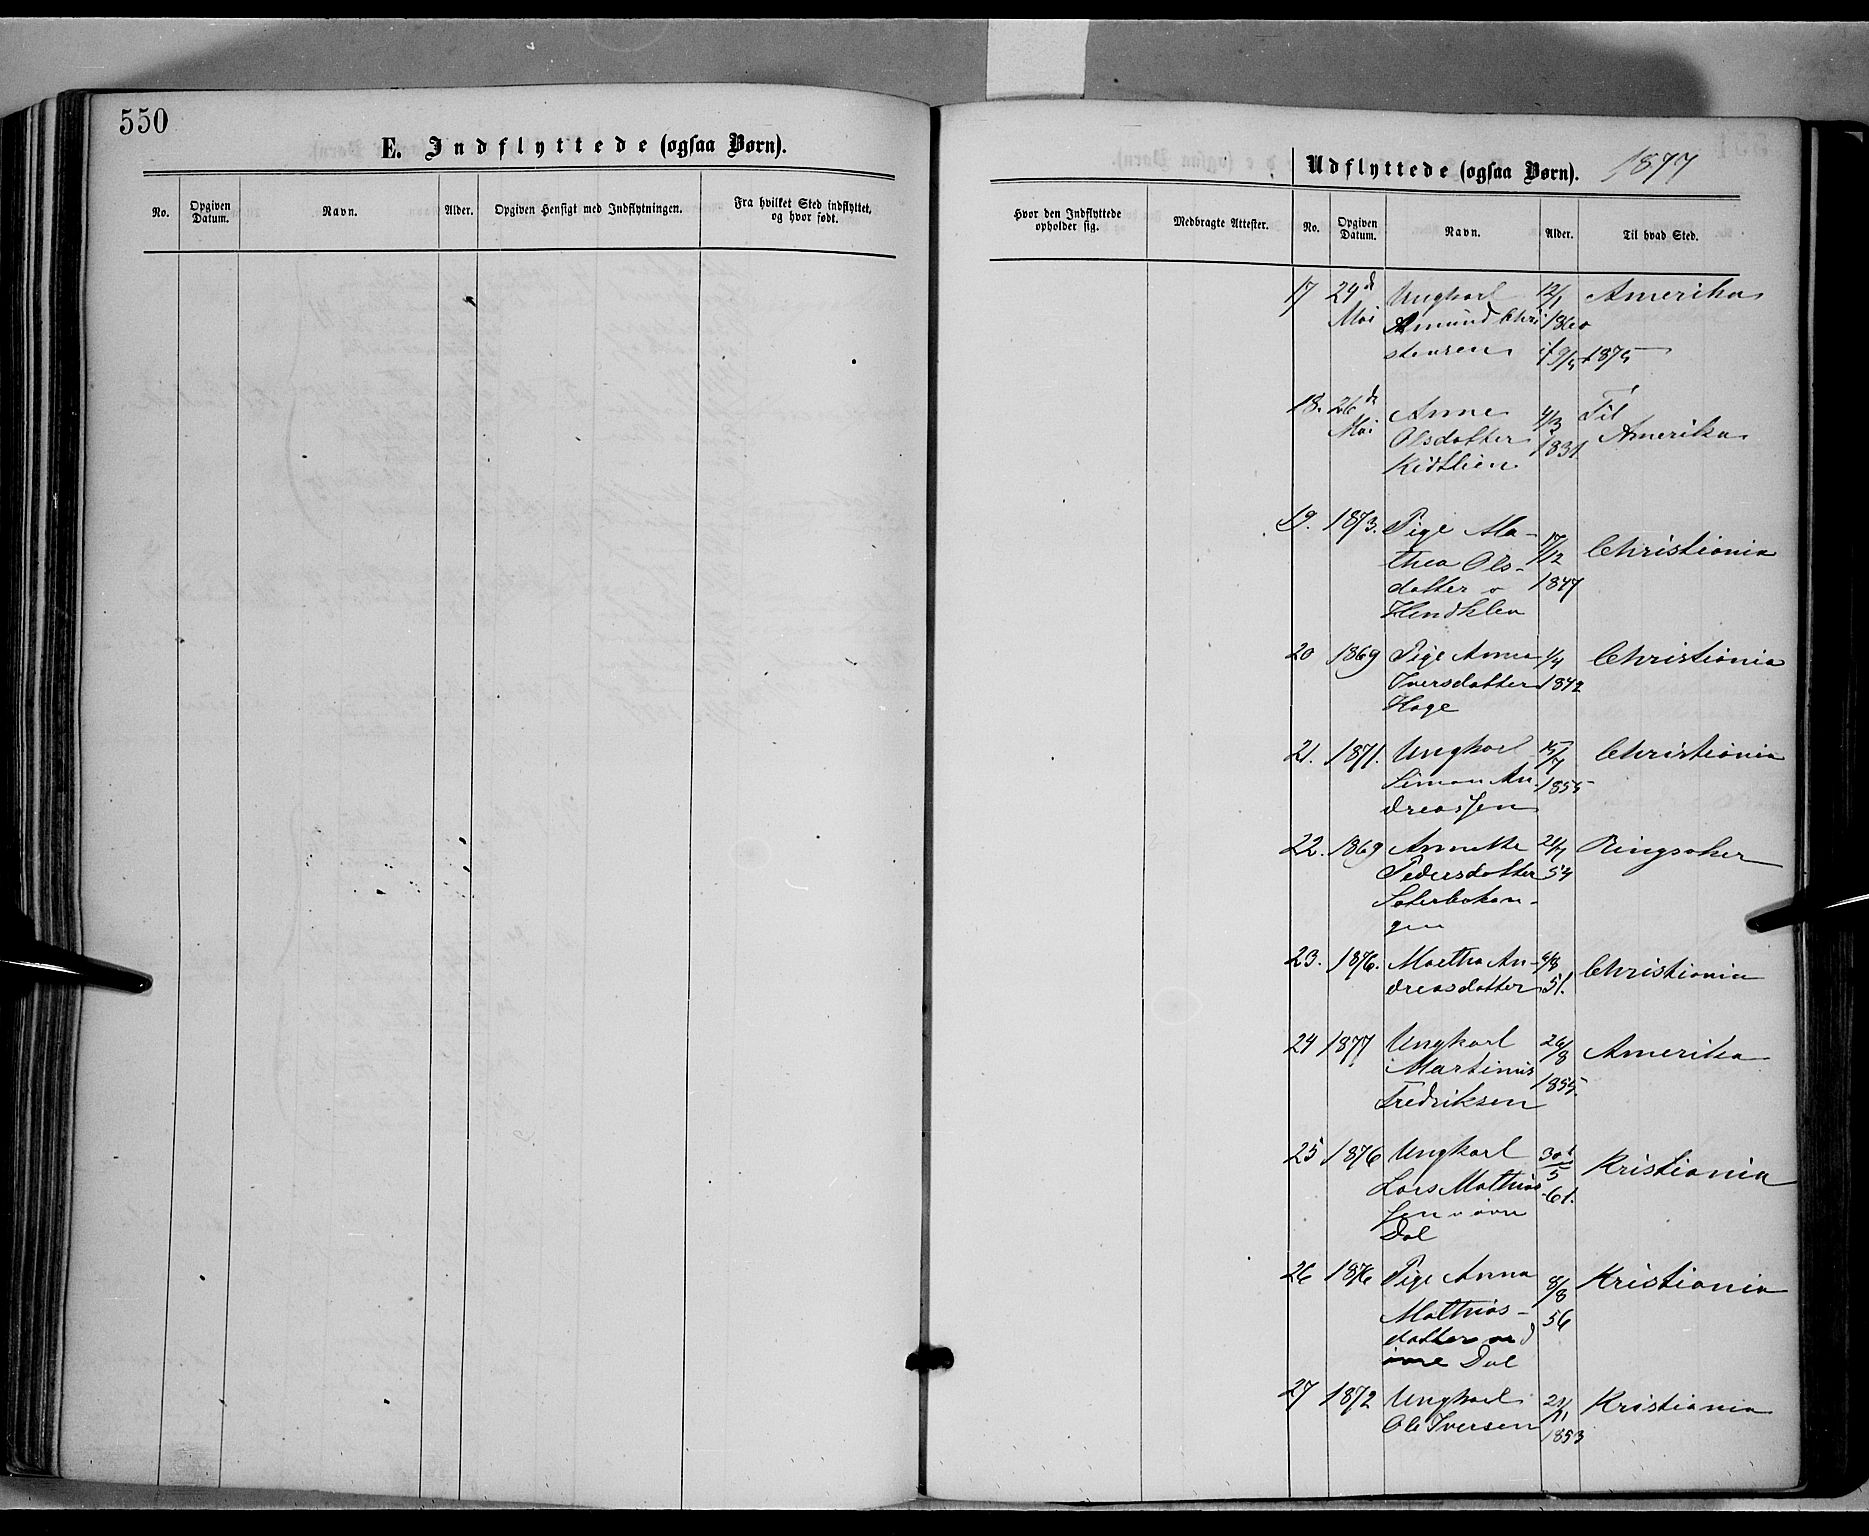 550
E. Indflyttede (ogsaa Børn).
No. Opgiven Datum. Navn. Alder. Opgiven Hensigt med Indflytningen. Fra hvilket Sted indflyttet, og hvor født.
Udflyttede (ogsaa Børn). 1877
Hvor den Indflyttede opholder sig. Medbragte Attester. No. Opgiven Datum. Navn. Alder. Til hvad Sted.
17 24d Ungkarl 12/1 Amerika
Mai Amund Chri 1860
stensen 1875
18. 26d Anne 4/3 Til
Mai Olsdatter 1831 Amerika
Kidtlien
19. 1873. Pige Ma- 17/12 Christiania
thea Ols-
datter 1847
20 1869 Pige Anna 1/4 Christiania
Iversdatter 1842
Hage
21. 1871. Ungkarl 15/7 Christiania
Simon An- 1855
dreassen
22. 1869 Annette 21/7 Ringsaker
Pedersdatter 54
Saterbakan-
gen
23. 1876. Martha An- Christiania
dreasdatter 51.
24 1877 Ungkarl 26/8 Amerika
Martinus 1855.
Fredriksen
25 1876 Ungkarl 30t/5 Kristiania
Lars Mathias 61.
sen øvre
Dal
26 1876 Pige Anna 8/8 Kristiania
Mathias- 56
datter
øvre Dal
27 1872 Ungkarl 21/11 Kristiania
Ole Iversen 1853